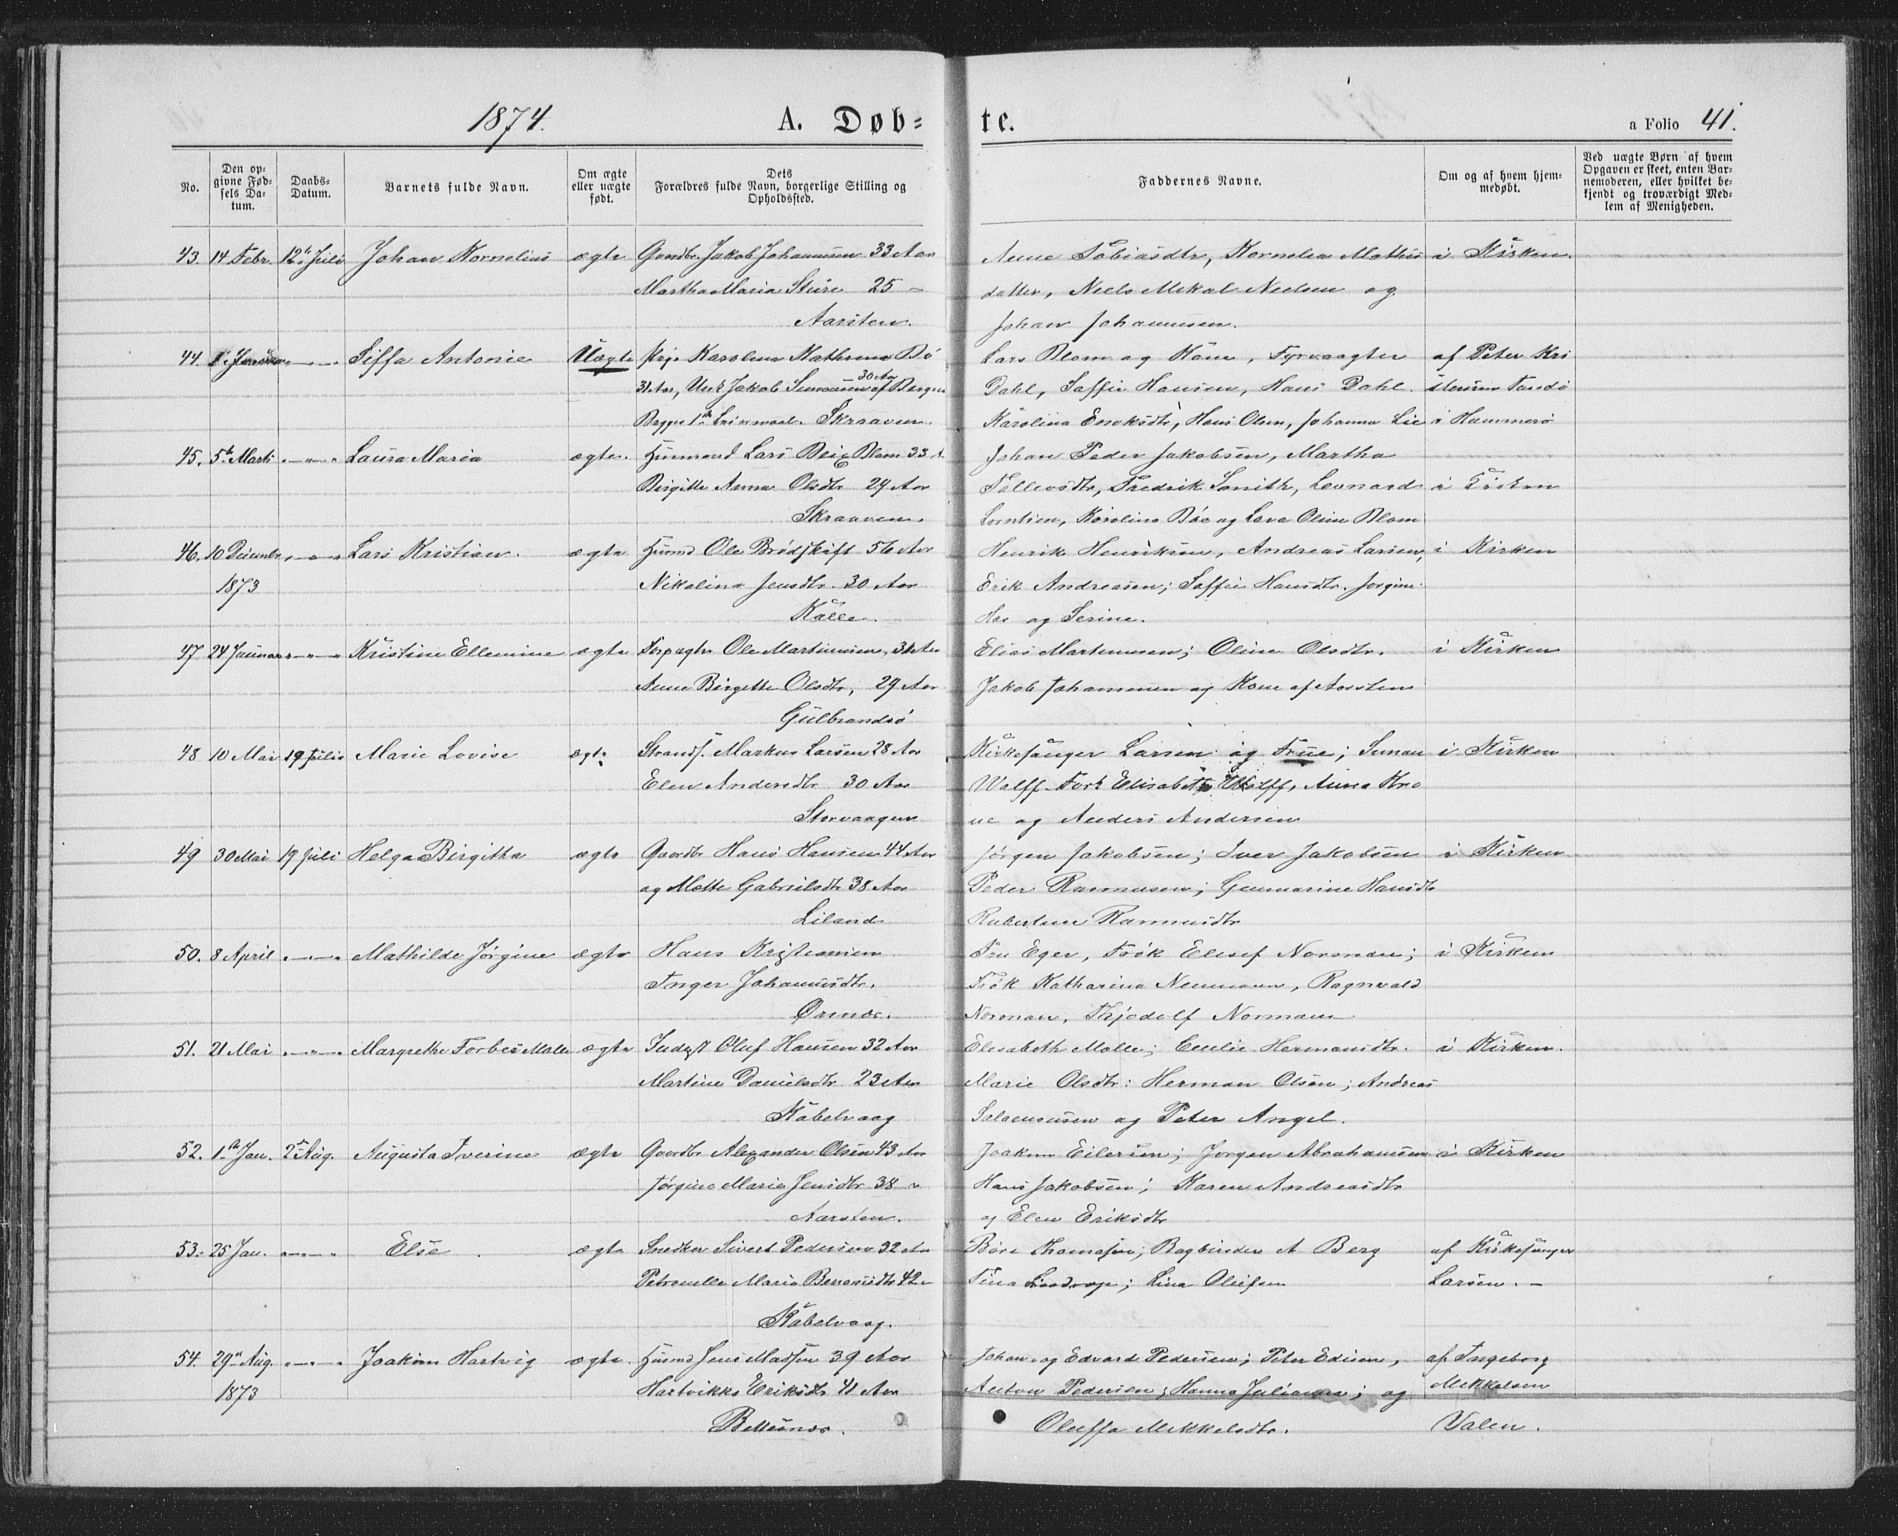 1874. A. Døb=
te. a Folio 41.
No. Den opgivne Fødsels Datum. Daabs-Datum. Barnets fulde Navn. Om ægte eller uægte født. Dets Forældres fulde Navn, borgerlige Stilling og Opholdssted. Faddernes Navne. Om og af hvem hjemmedøbt. Ved uægte Børn af hvem Opgaven er skeet, enten Barnemoderen, eller hvilket bekjendt og troværdigt Medlem af Menigheden.
43. 14 Febr. 12te Juli Johan Kornelius ægte Gaardbr Jakob Johannesen 33 Aar Anne Tobiasdtr, Kornelia Mathis i Kirken.
Martha Maria Sture 25 – datter, Niels Mikal Nielsen og
Aarsten. Johan Johannesen.
44. Siffa Antonie Uægte Pige Karolina Kathrina Bö Lars Blom og Kone, Fyrvaagter af Peter Kri
31 Aar, Jakob Simonsen 30 Aar af Bergen Dahl, Saffie Hansen, Hans Dahl.
Skraaven. Karolina Enoksdtr, Hans Olsen, Johanna Lie i Hammerö
45. 5te Marts „ „ „ Laura Maria ægte. Husmand Lars Blom 33 A Johan Peder Jakobsen, Martha
Birgitte Anna Olsdtr 24 Aar Tollevsdtr, Fredrik Smith, Leonard i Kirken
Skraaven. Lorntsen, Karolina Böe og Lava Oline Blom
46. 10 Decembr „ „ „ Lars Kristian. ægte Husmd Ole Brödskift 56 Aar Henrik Henriksen, Andreas Larsen, i Kirken
1873 Nikolina Jensdtr 30 Aar Erik Andreasen; Saffie Hansdtr. Jorgine
Kalle. og Serine.
47. 24 Januar „ „ „ Kristine Ellemine ægte Forpagter Ole Martinusen, 31 Aar Elias Martinusen; Oline Olsdtr. i Kirken
Anne Birgitte Olsdtr, 29 Aar Jakob Johannesen og Kone af Aarsten
Gulbrandsö
48 10 Mai 19 Julis Marie Lovise ægte Strands. Markus Larsen 28 Aar Kirkesanger Larsen og Frue; Simon i Kirken
Elen Andersdtr 30 Aar Wolff Elisabeth Wolff, Anna Kro
Storvaagen ne og Anders Andersen
49 30 Mai 19 Juli Helga Birgitha ægte Gaardbr Hans Hansen 44 Aar Jörgen Jakobsen; Iver Jakobsen i Kirken
og Mette Gabrielsdtr 38 Aar Peder Rasmusen; Gunnarine Hansdtr
Liland Rasmusdtr
50. 8 April „ „ „ Mathilde Jörgine ægte Hans Kristiansen Fru Eger, Frök Elisef Norman; i Kirken
Inger Johannesdtr. Frök Katharina Neumann, Ragnvald
Örsnes. Norman, Thjodolf Norman
51. 21 Mai „ „ „ Margrethe Forbes Molle ægte Oluf Hansen 32 Aar Elisabeth Molle; Cecilie Hermansdtr. i Kirken.
Martine Danielsdtr 23 Aar Marie Olsdtr: Herman Olsen; Andreas
Kabelvaag Salamonsen og Peter Angel.
52. 1ste Jan. 2den Aug. Augusta Iverine ægte Gaardbr Alexander Olsen 43 Aar Joakim Eilersen; Jorgen Abrahamsen i Kirken
Jörgine Maria Jensdtr 38 „ Hans Jakobsen; Karen Andreasdtr
Aarsten. og Elen Eriksdtr
53. 25 Jan. „ „ „ Else. ægte Snedker Sivert Pedersen 32 Aar Thomasen; Bogbinder A Berg af Kirkesanger
Petronelle Maria 42 – Tina; Lina Olufsen Larsen. –
Kabelvaag.
54. 29de Aug. „ „ „ Joakim Hartvig ægte. Husmd Jens Madsen 39 Aar Johan og Edvard Pedersen; Peter Edisen, af Ingeborg
1873 Hartvikka Eriksdtr 41 Aar Anton Pedersen; Hanna Julianna; og Mikkelsen
Oluffa Mikkelsdtr. Valen.